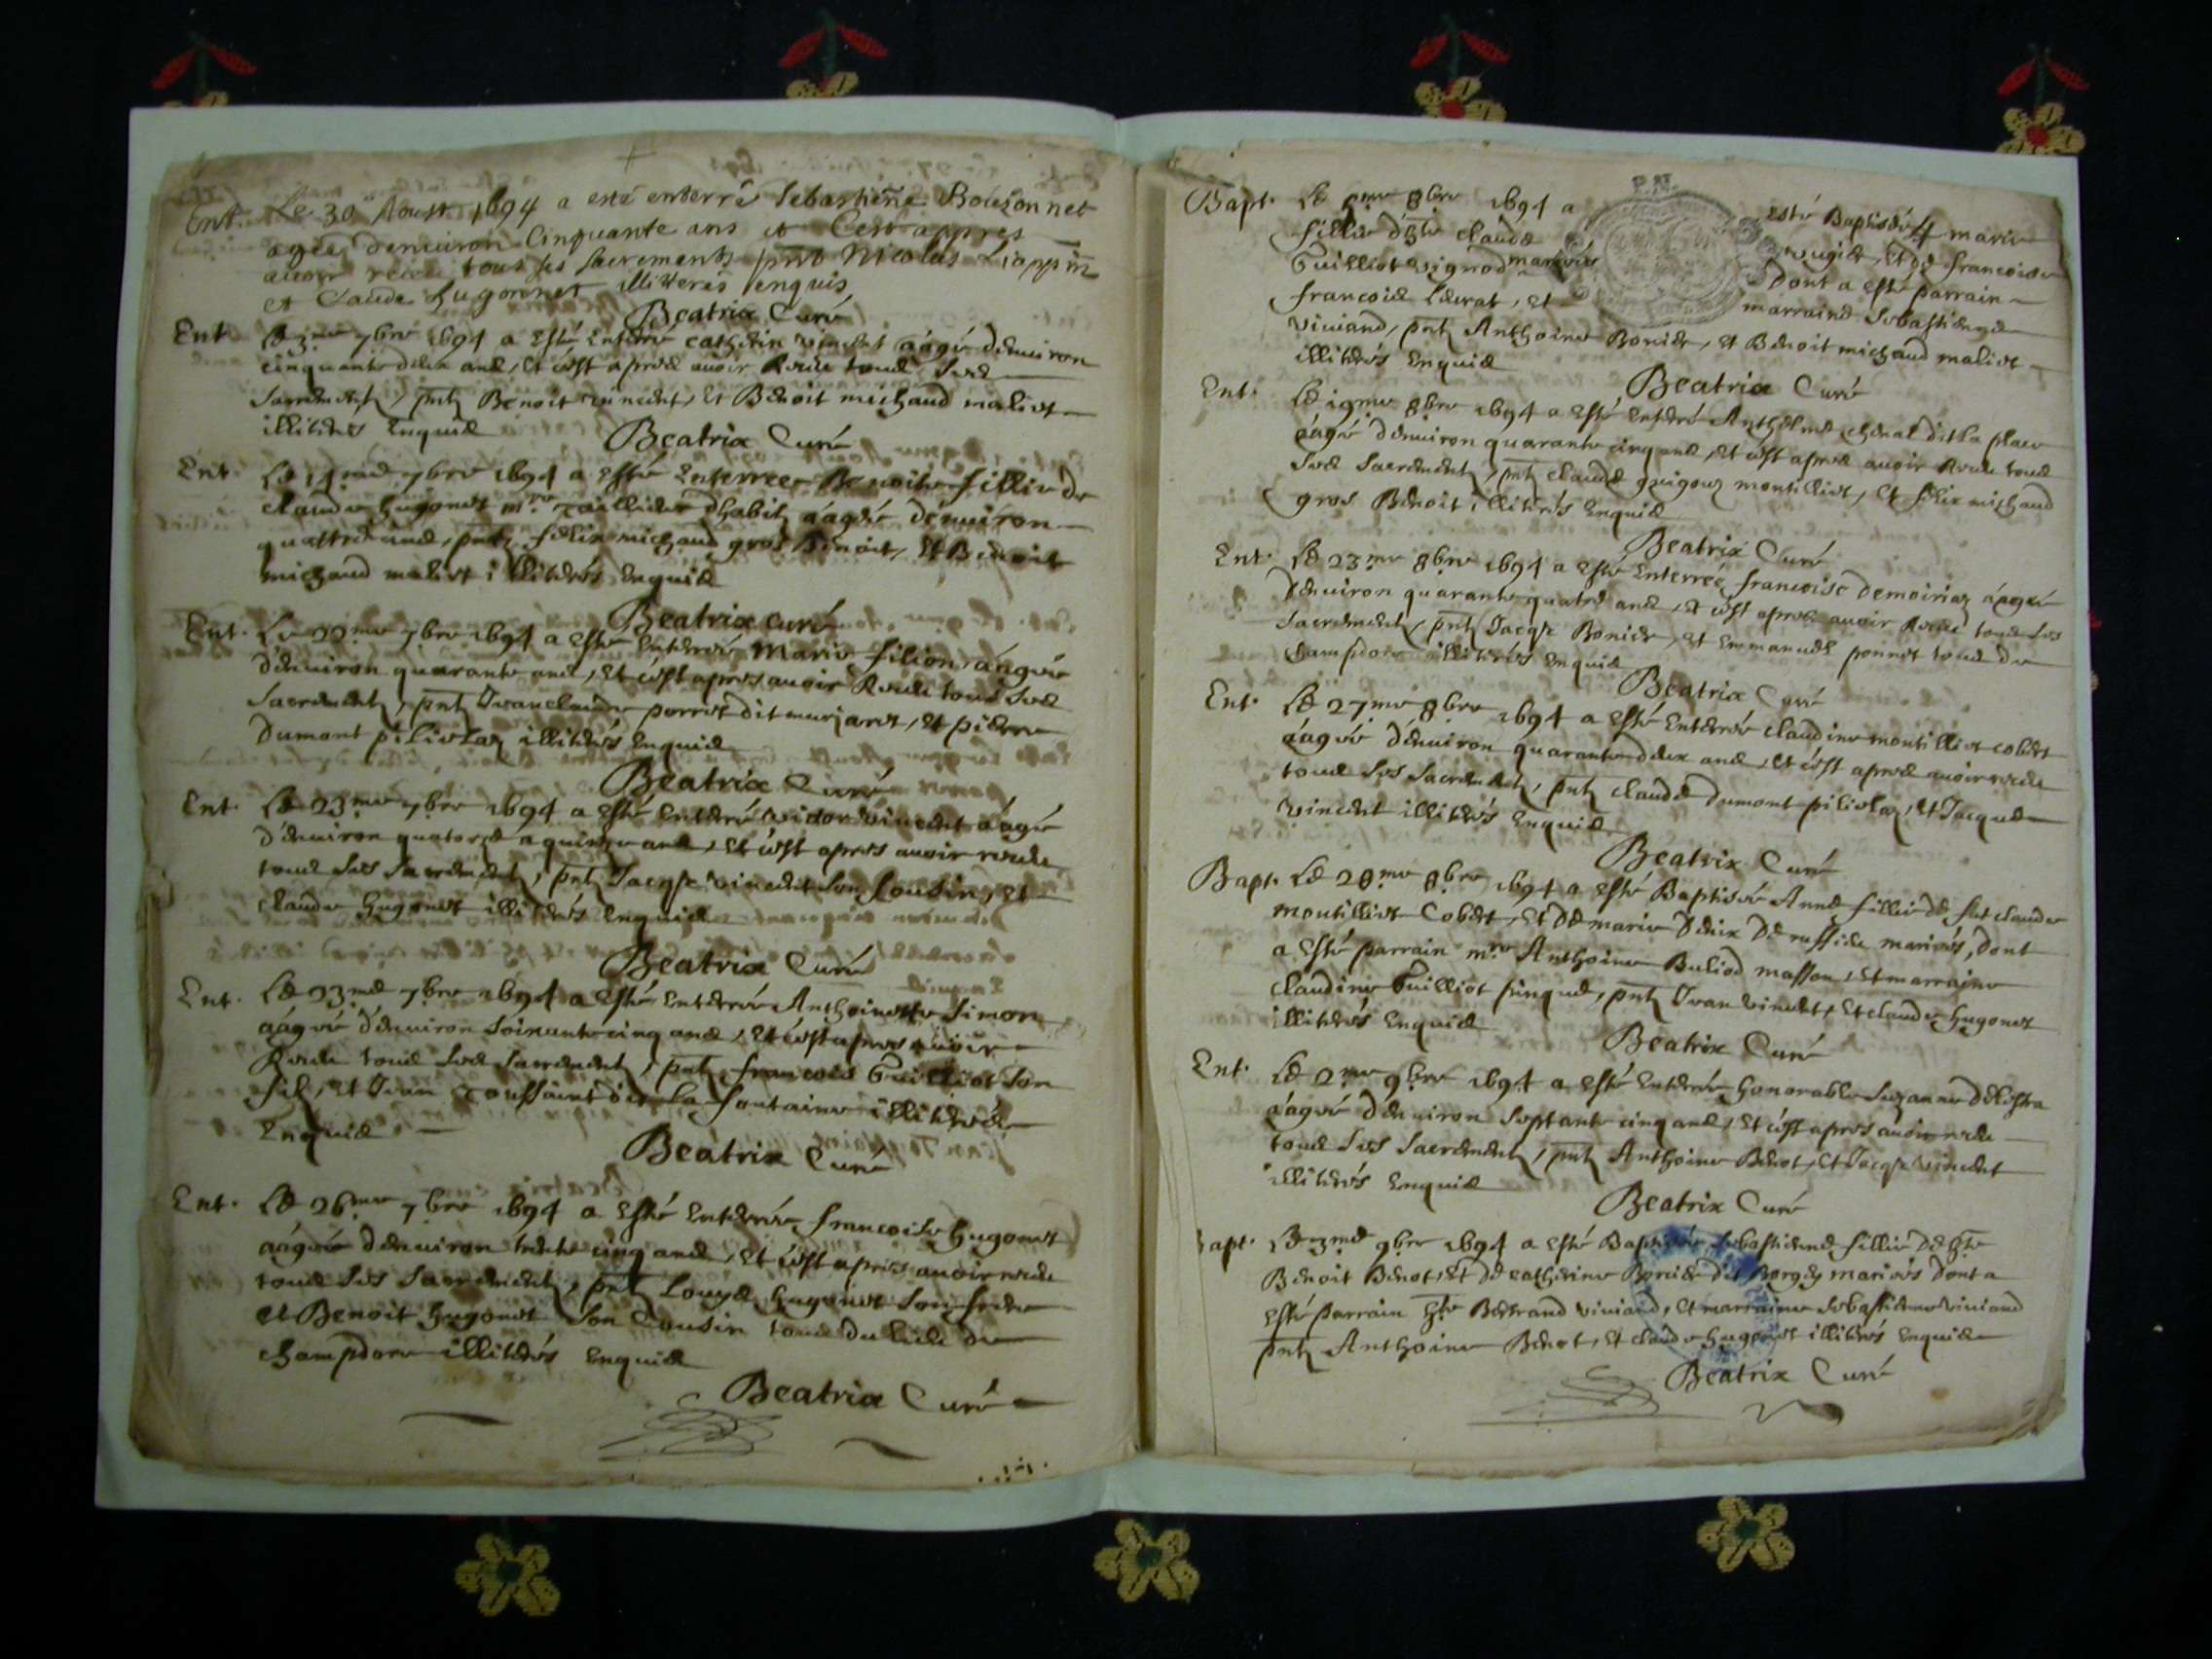 Ent. Le 30e Aoust 1694 a esté enterré Sebastiene Bolozonnet
agée denuiron Cinquante ans et Cest appres
auoir receu tous ses sacrements pnts Nicolas
et Claude Hugonnet illitterés enquis
Beatrix Curé
Ent. Le 3me 7bre 1694 a esté enterré Catherin vincent aágé d'enuiron
cinquante deux ans, et c'est apres auoir Receu tous ses
Sacrements, pnts Benoit vincent, et Benoit michaud maliet
illiterés enquis
Beatrix Curé
Ent. Le 14me 7bre 1694 a esté Enterree Benoite fillie de
Claude hugonet mre Taillieur d'habits aágée d'enuiron
quattre ans, pnts felix michaud gros Benoit, et Benoit
michaud maliet illiterés enquis
Beatrix curé
Ent. Le 22me 7bre 1694 a esté enterrée Marie filion aágée
d'enuiron quarante ans, et c'est apres auoir Receu tous ses
Sacrements, pnts Jean claude perret dit murjaret, et pierre
Dumont piliolaz illiterés enquis
Beatrix Curé
Ent. Le 23me 7bre 1694 a esté enterré victor vincent aágé
d'enuiron quatorze a quinze ans, et c'est apres auoir receu
tous ses Sacrements, pnts Jacqs vincent son Cousin, et
claude hugonet illiterés enquis
Beatrix Curé
Ent. Le 23me 7bre 1694 a esté enterrée Anthoinette Simon
aágée d'enuiron Soixante cinq ans, et c'est apres auoir
Receu tous ses Sacrements, pnts francois Guilliot son
fils, et Jean Toussaint dit La fontaine illiterés
Enquis
Beatrix Curé
Ent. Le 26me 7bre 1694 a esté enterrée francoise hugonet
aágée d'enuiron trente cinq ans, et c'est apres auoir receu
tous ses Sacrements, pnts Louys hugonet son frere
et Benoit hugonet son Cousin tous du lieu de
champdore illiterés enquis
Beatrix Curé
Bapt. Le 8me 8bre 1694 a esté Baptisée marie
fillie d'hte claude et de francoise
Guilliot vignod mariés Dont a esté parrain
francois Leurat, et marraine Sebastienne
viuiand, pnts Anthoine Bonier, et Benoit michaud maliet
illiterés enquis
Beatrix Curé
Ent. Le 19me 8bre 1694 a esté enterré Anthelme cheual dit la place
aágé d'enuiron quarante cinq ans, et c'est apres auoir Receu tous
ses Sacrements, pnts claude guigouz montilliet, et felix michaud
gros Benoit illiterés enquis
Beatrix Curé
Ent. Le 23me 8bre 1694 a esté Enterreé francoise Demoiriaz aágée
d'enuiron quarante quatre ans, et c'est apres auoir Receu tous ses
Sacrements, pnts Jacqs Bonier, et Emmanuel ponnet tous de
champdore illiterés enquis
Beatrix Curé
Ent. Le 27me 8bre 1694 a esté enterrée claudine montilliet cobet
aágée d'enuiron quarante deux ans, et c'est apres auoir receu
tous ses Sacrements, pnts claude Dumont piliolaz, et Jacques
vincent illiterés enquis
Beatrix Curé
Bapt. Le 28me 8bre 1694 a esté Baptisée Anne fillie de feu claude
montilliet Cobet, et de marie Denix de ruffieu mariés, dont
a esté parrain mre Anthoine Buliod masson, et marraine
claudine Guilliot, pnts Jean vincent, et claude hugonet
illiterés enquis
Beatrix Curé
Ent. Le 2me 9bre 1694 a esté enterrée honorable Suzanne
aágée d'enuiron Septante cinq ans, et c'est apres auoir receu
tous ses Sacrements, pnts Anthoine Benot, et Jacqs vincent
illiterés enquis
Beatrix Curé
Bapt. Le 3me 9bre 1694 a esté Baptisée Sebastienne fillie de hte
Benoit Benot, et de catherine Bonier dit Borgey mariés dont a
esté parrain hte Bertrand viuiand, et marraine Sebastienne viuiand
pnts Anthoine Benot, et claude hugonet illiterés enquis
Beatrix Curé